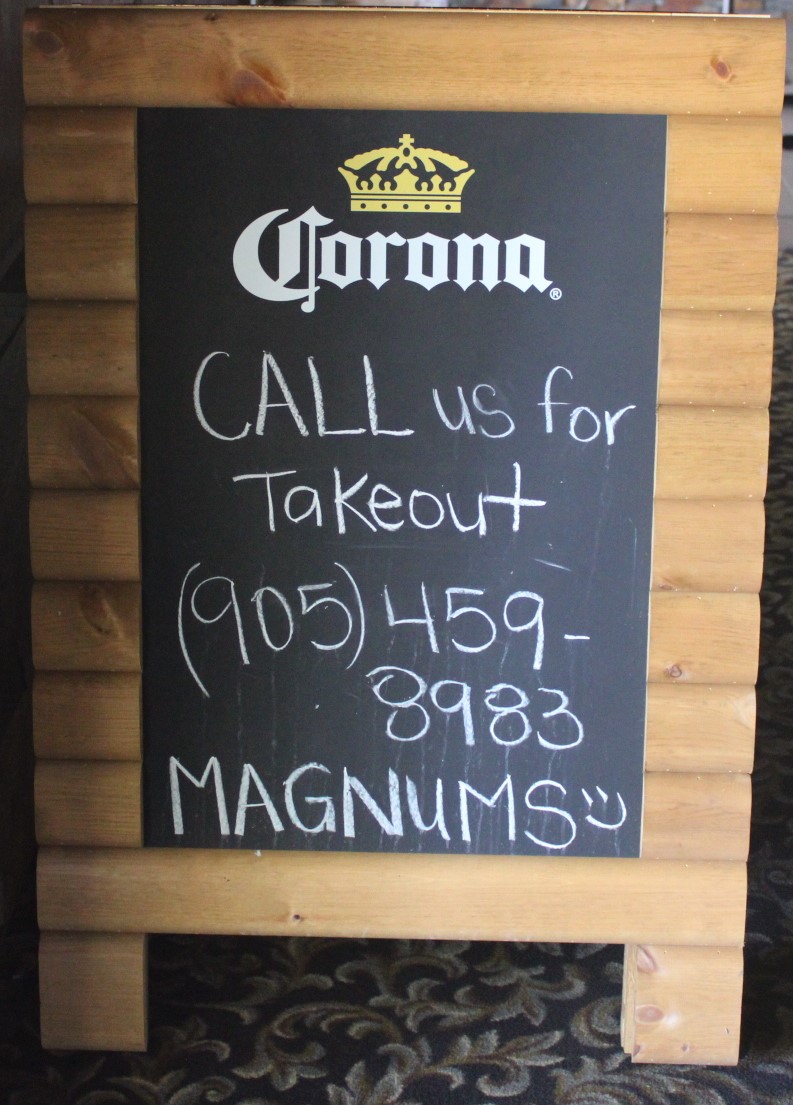 Corona®
CALL us for
Takeout
(905) 459-
8983
MAGNUMS :)